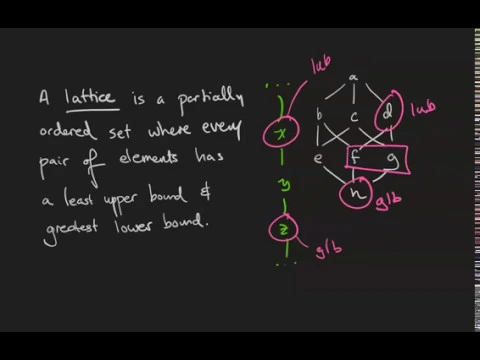 A lattice is a partially
ordered set where every
pair of elements has
a least upper bound &
greatest lower bound.
...
lub
x
y
z
glb
...
a
b c d lub
e f g
h glb